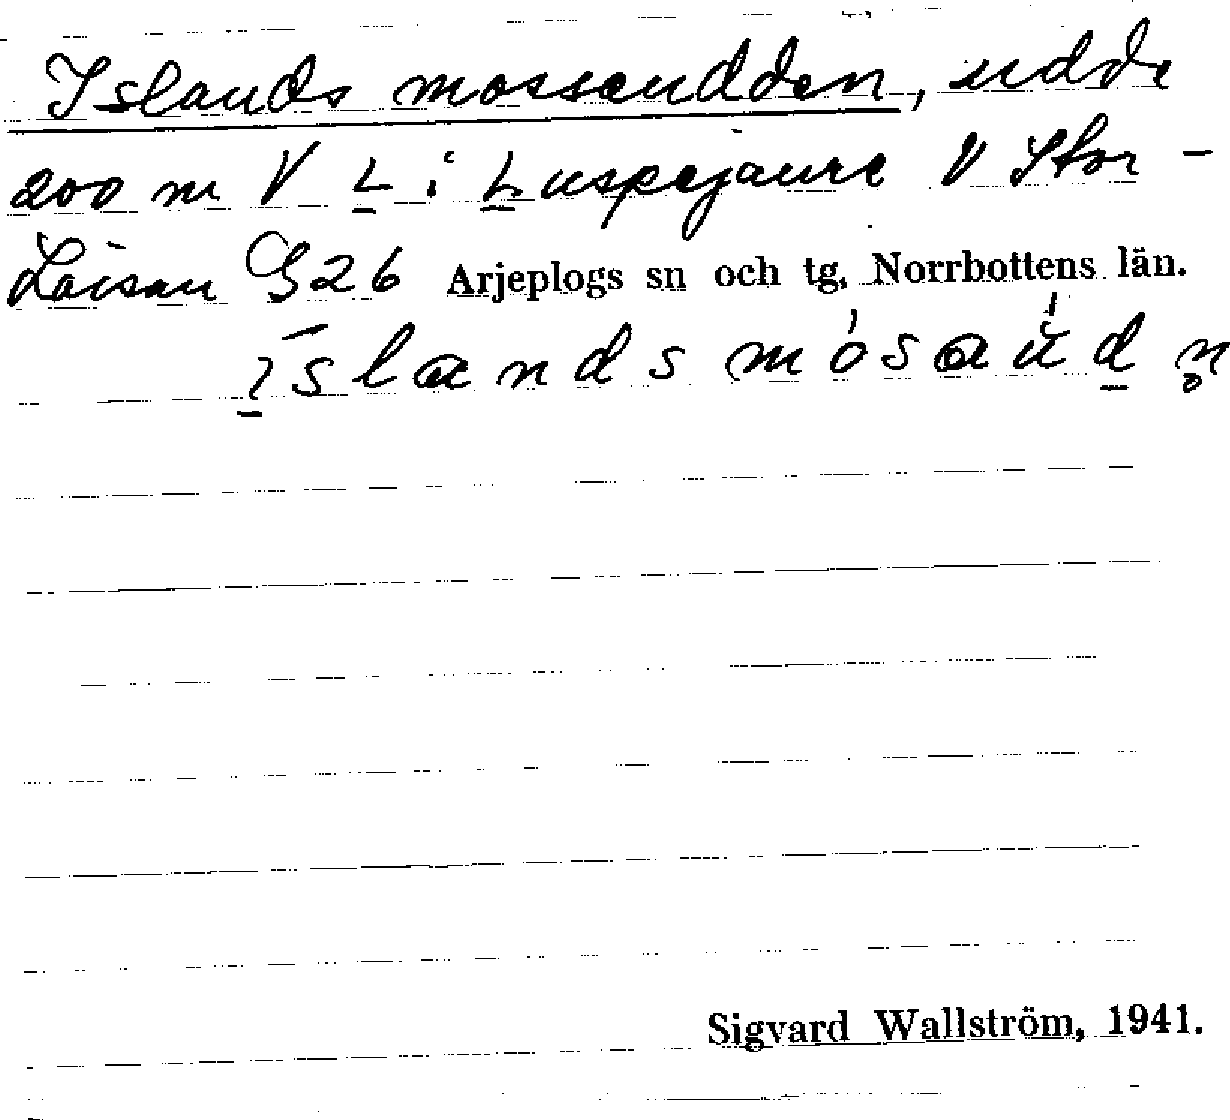 Islandsmosseudden, udde
200 m V L i Luspejaure V Stor-
Laisan G 26 Arjeplogs sn och tg, Norrbottens län.
Sigvard Wallström, 1941.